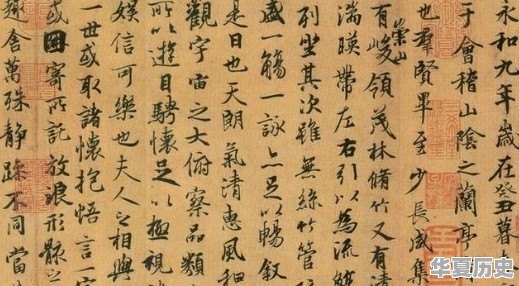 永和九年歲在癸丑暮
于會稽山陰之蘭亭
也羣賢畢至少長咸集
崇山
有峻領茂林脩竹又有清
湍暎帶左右引以為流觴
列坐其次雖無絲竹管
盛一觴一詠亦足以暢敘
是日也天朗氣清惠風和
觀宇宙之大俯察品類
所以遊目騁懷足以極視
娛信可樂也夫人之相與
一世或取諸懷抱悟言一
或因寄所託放浪形骸之
趣舍萬殊靜躁不同當
华夏历史